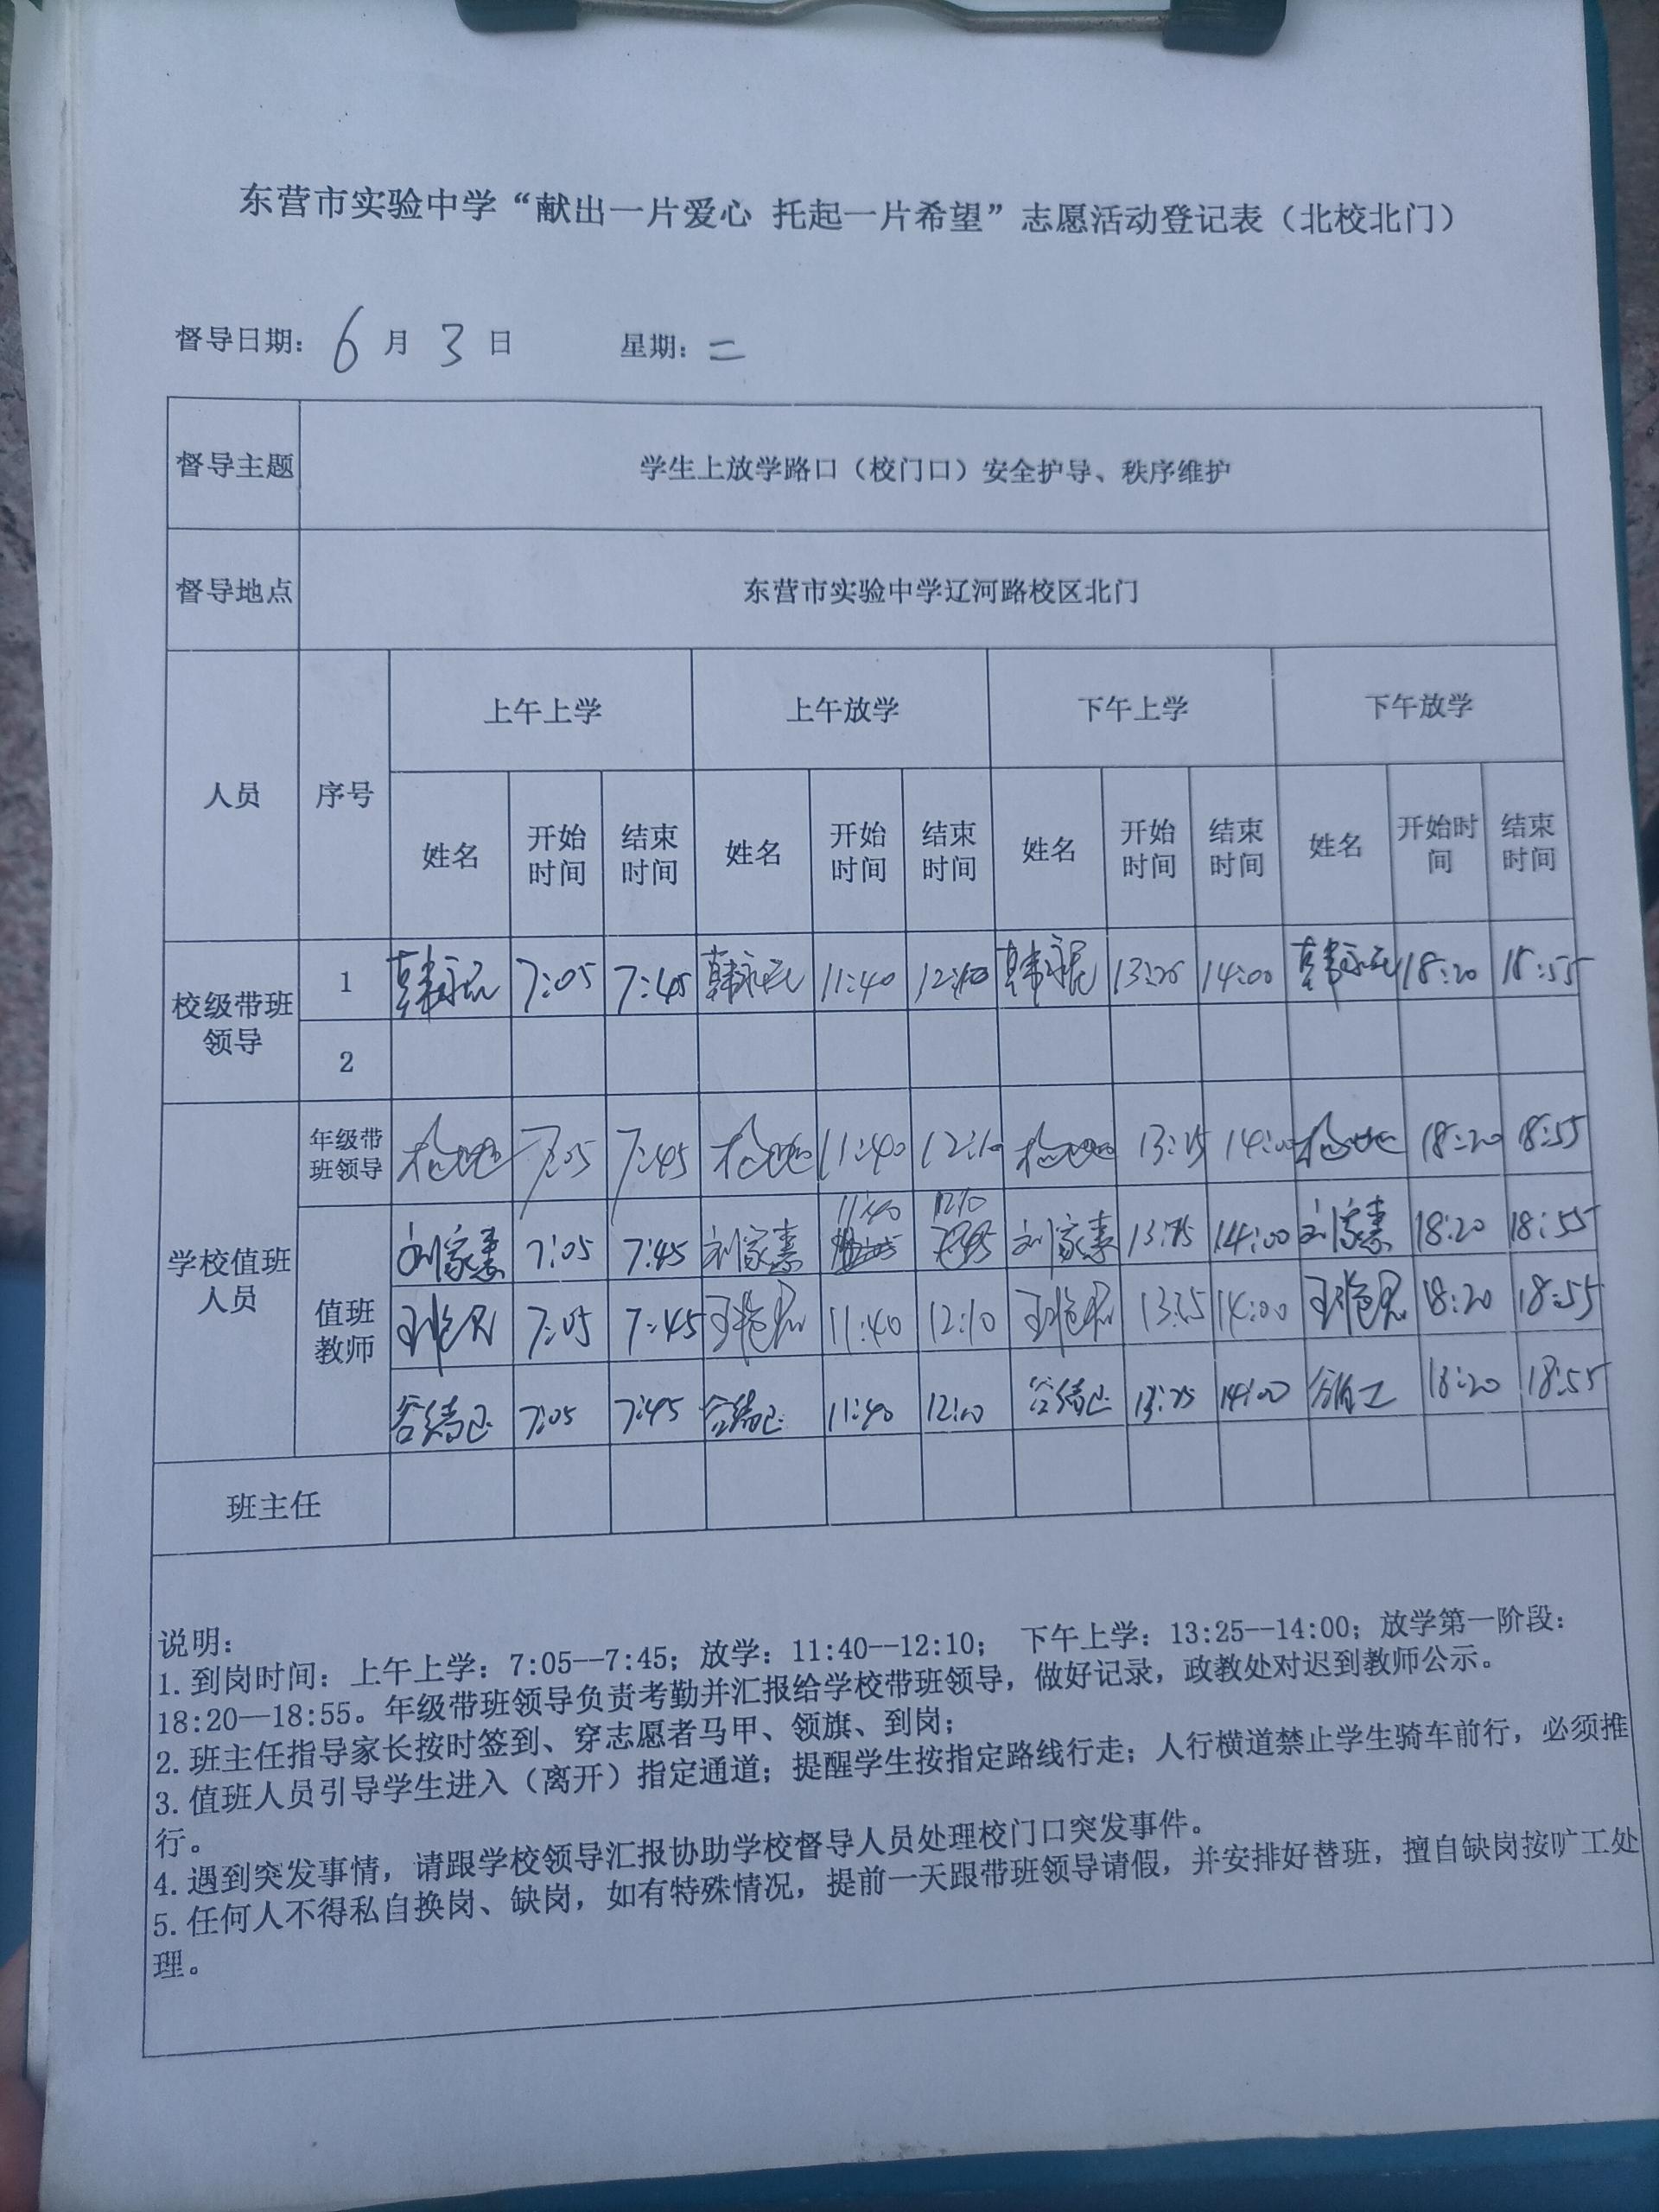 东营市实验中学“献出一片爱心 托起一片希望”志愿活动登记表（北校北门）
督导日期：6月3日 星期：二
督导主题 学生上放学路口（校门口）安全护导、秩序维护
督导地点 东营市实验中学辽河路校区北门
人员 序号 上午上学 上午放学 下午上学 下午放学
姓名 开始时间 结束时间 姓名 开始时间 结束时间 姓名 开始时间 结束时间 姓名 开始时间 结束时间
校级带班领导
1 7:05 7:45 11:40 12:10 14:00 18:20 18:55
2
学校值班人员
年级带班领导 7:05 7:45 11:40 12:10 14:00 18:20 18:55
值班教师
7:05 7:45 11:40 12:10 14:00 18:20 18:55
7:05 7:45 11:40 12:10 14:00 18:20 18:55
7:05 7:45 11:40 12:10 14:00 18:20 18:55
班主任
说明：
1.到岗时间：上午上学：7:05--7:45；放学：11:40--12:10； 下午上学：13:25--14:00；放学第一阶段：
18:20—18:55。年级带班领导负责考勤并汇报给学校带班领导，做好记录，政教处对迟到教师公示。
2.班主任指导家长按时签到、穿志愿者马甲、领旗、到岗；
3.值班人员引导学生进入（离开）指定通道；提醒学生按指定路线行走；人行横道禁止学生骑车前行，必须推
行。
4.遇到突发事情，请跟学校领导汇报协助学校督导人员处理校门口突发事件。
5.任何人不得私自换岗、缺岗，如有特殊情况，提前一天跟带班领导请假，并安排好替班，擅自缺岗按旷工处
理。